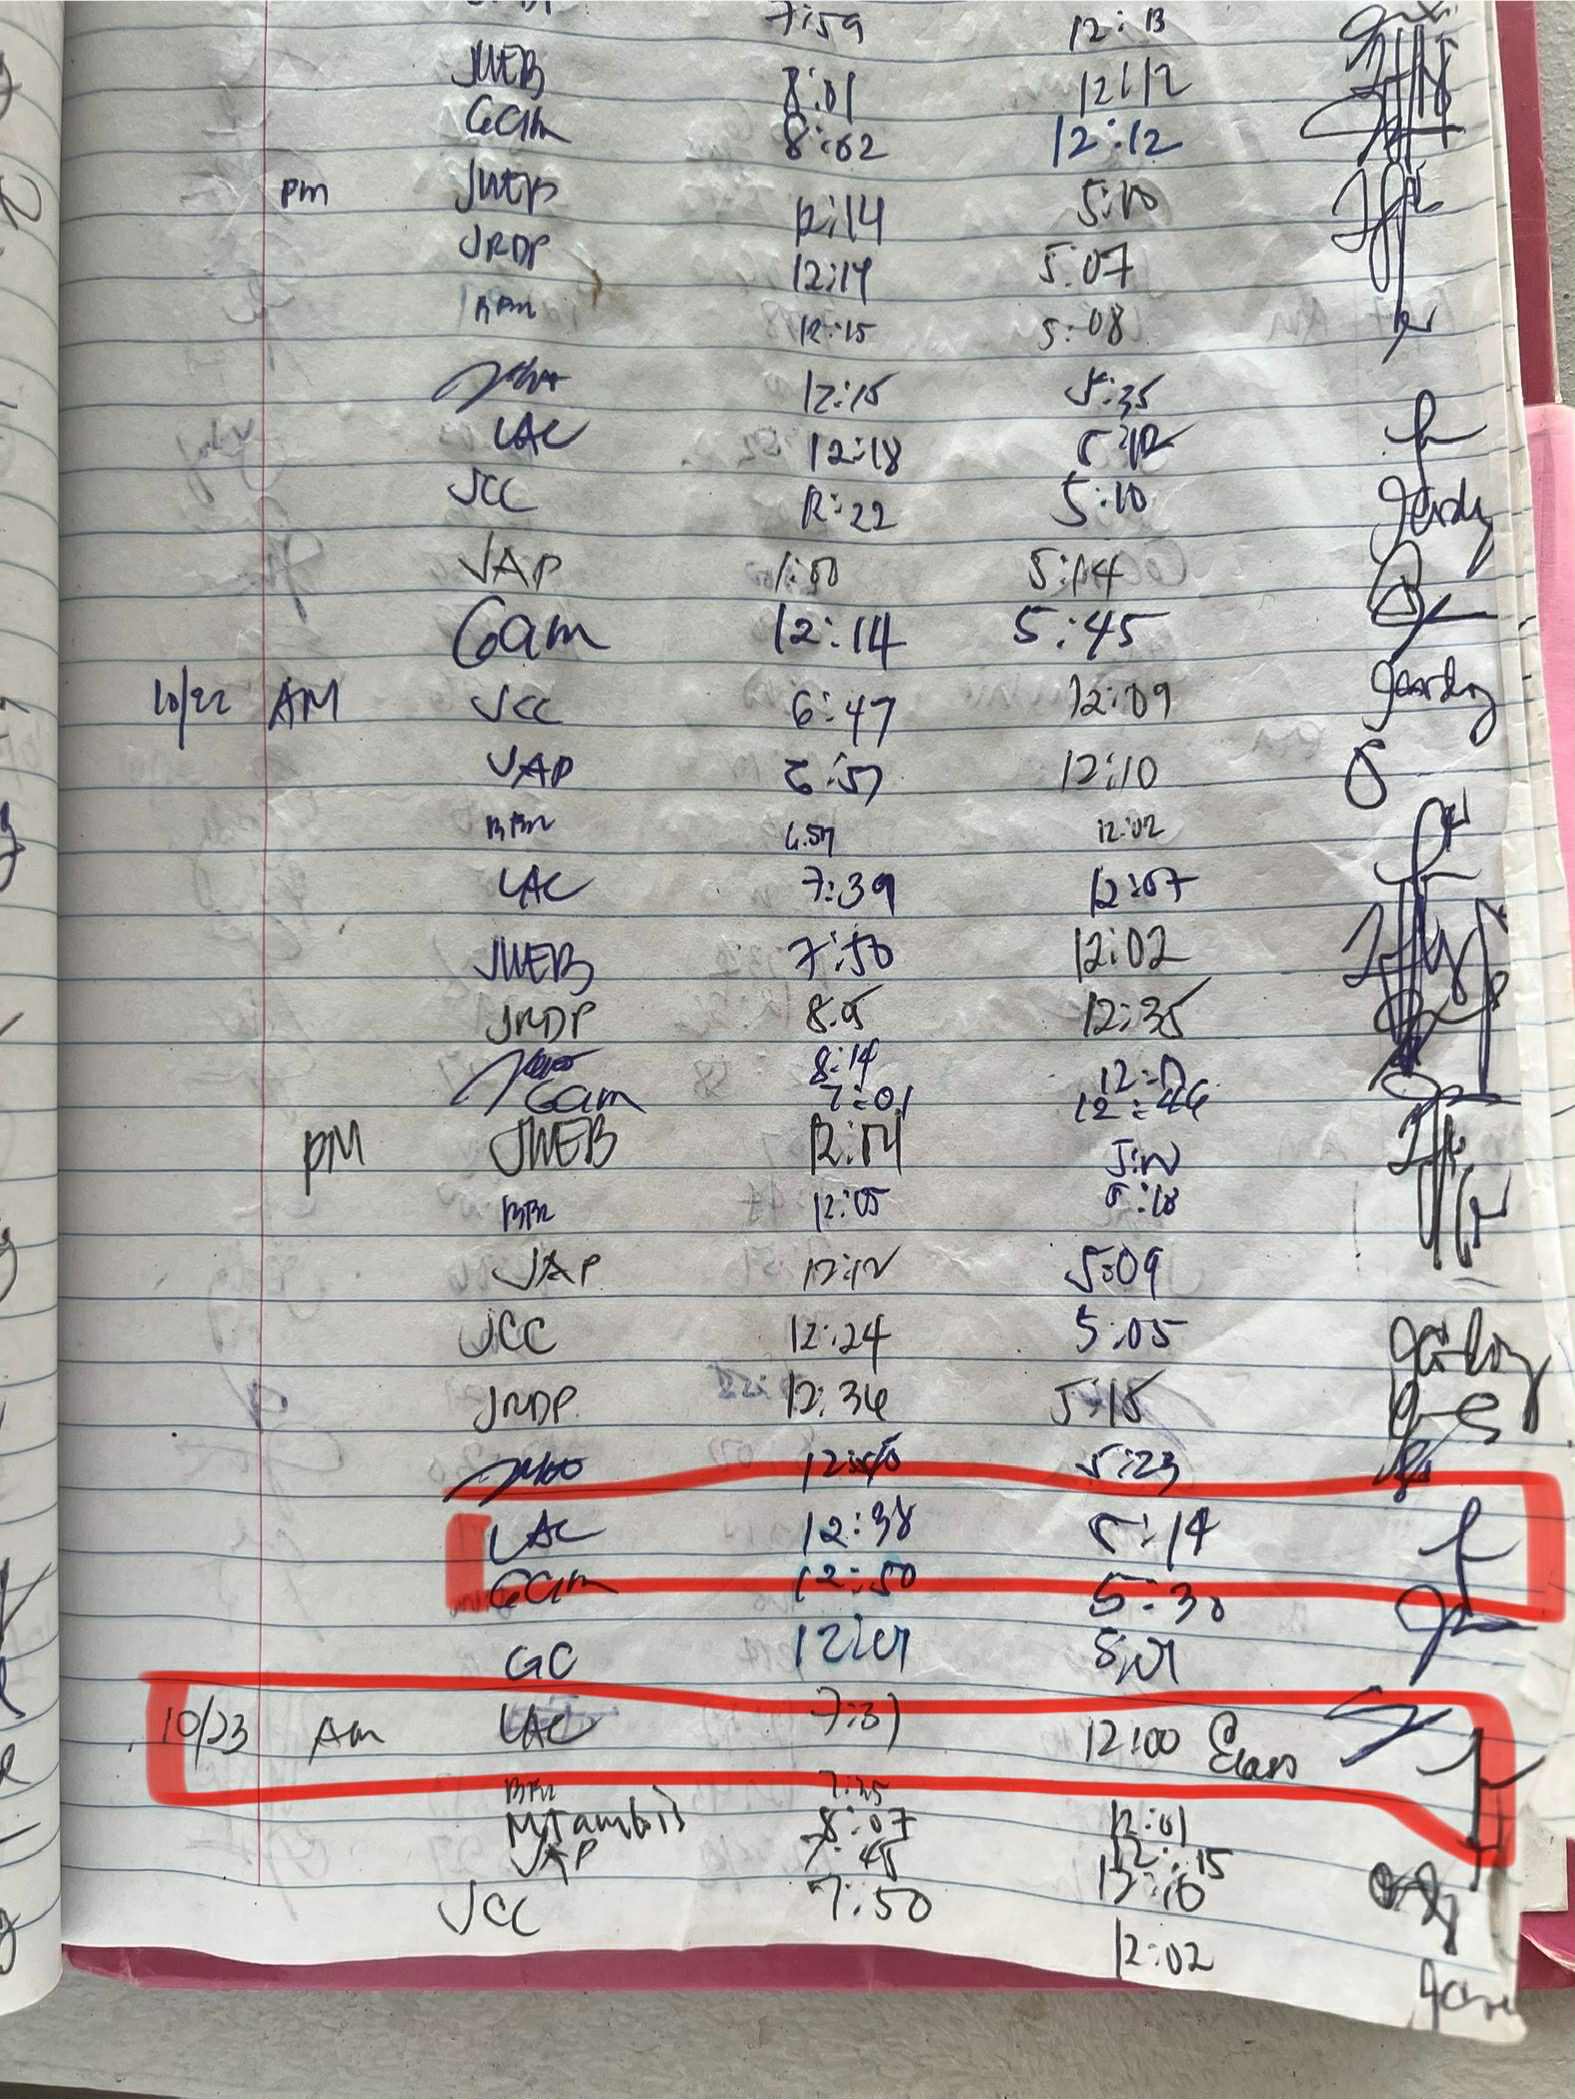 7:59 12:13
JWEB 8:01 12:12
Gam 8:02 12:12
pm JWEB 12:14 5:10
JRDP 12:14 5:07
BBM 12:15 5:08
12:15 5:35
LAC 12:18 5:12
JCC 12:22 5:10
JAP 1:00 5:14
Gam 12:14 5:45
10/22 AM JCC 6:47 12:09
JAP 6:57 12:10
BBM 6:57 12:02
LAC 7:39 12:07
JWEB 7:50 12:02
JRDP 12:35
8:14
Gam 7:01 12:46
PM JWEB 12:04
12:05 5:10
JAP 12:12 5:09
JCC 12:24 5:05
JRDP 12:36 5:15
5:23
LAC 12:38 5:14
Gam 12:50 5:30
GC 12:01 5:01
10/23 Am LAC 7:31 12:00 Class
7:25 12:01
MJambis 8:07 12:15
JAP 7:45 12:10
JCC 7:50 12:02